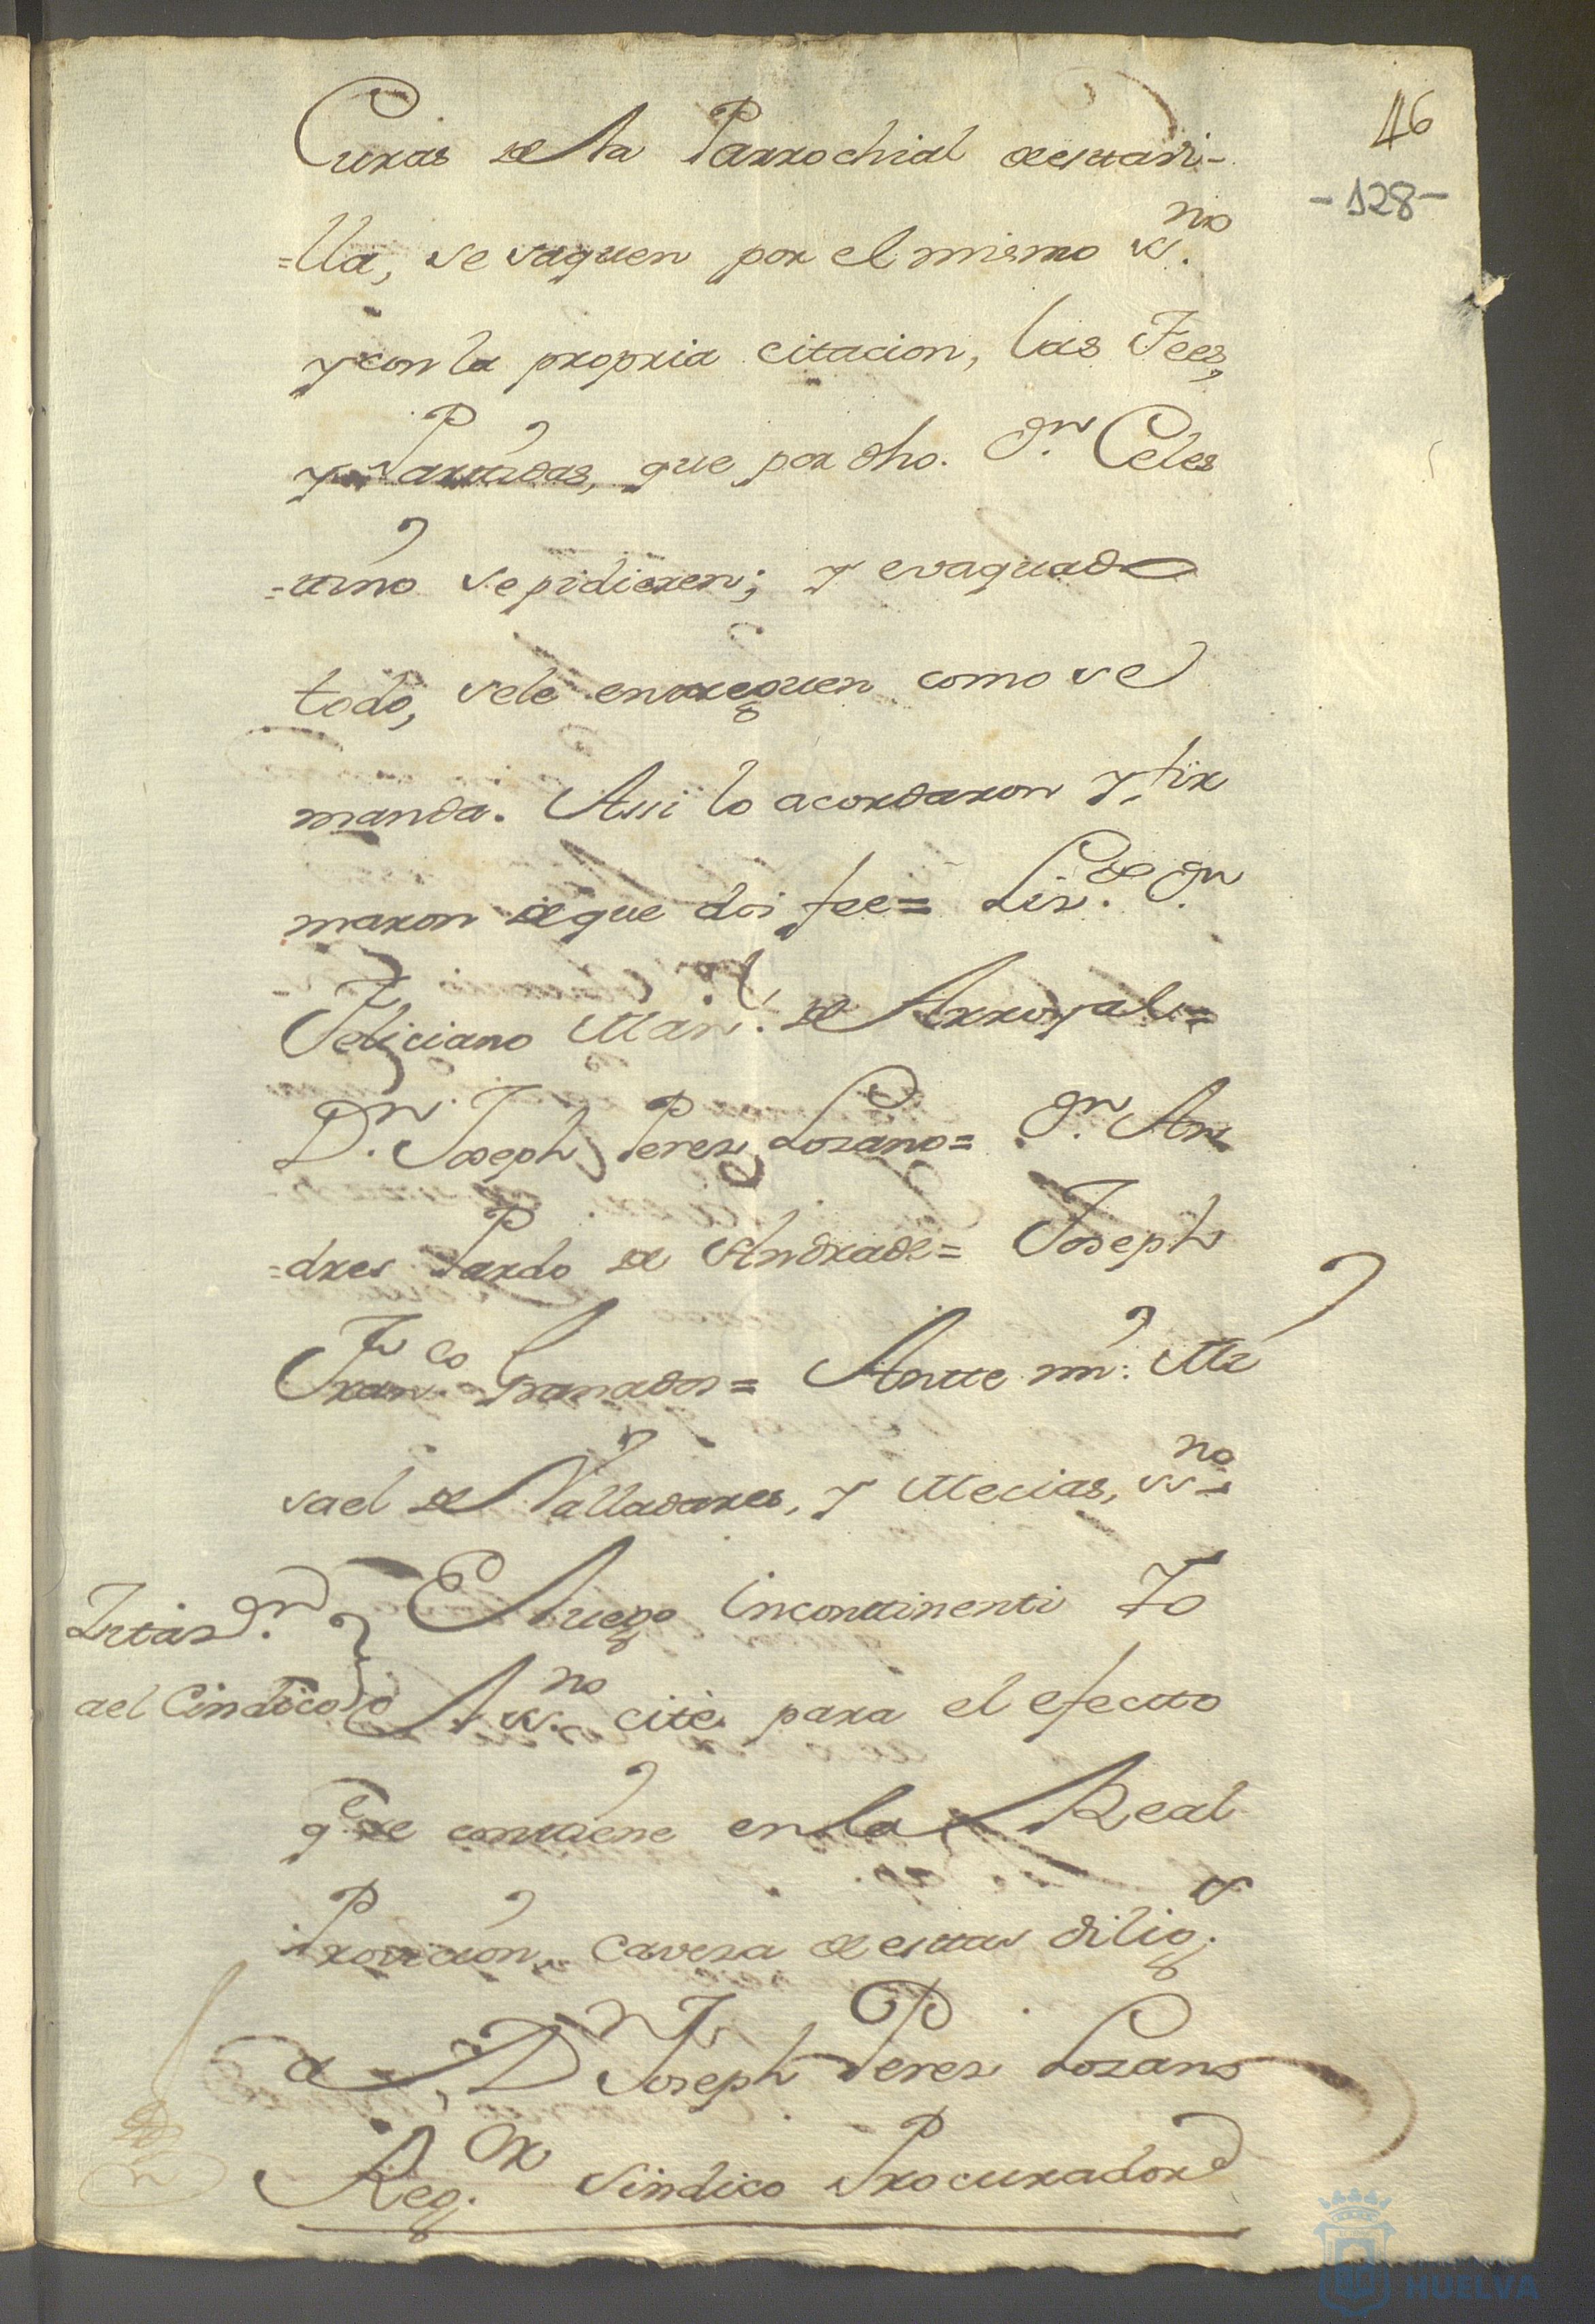 46
-128-
Curas de la Parrochial de esta vi-
=lla, se saquen por el mismo ss.no
y con la propria citacion, las Fees,
y Partidas, que por dho. Dn. Celes
=tino se pidieren; y evaquado
todo, sele entreguen como se
manda. Assi lo acordaron y fir
maron de que doi fee= Liz.do Dn.
Feliciano Man.l de Arroyal=
Dn. Joseph Perez Lozano= Dn. An
=dres Pardo de Andrade= Joseph
Fran.co Granados= Antte mi: Mi
sael de Valladares, y Mecias, ss.no=
E luego incontinenti Yo
el Cindico
el ss.no cité para el efectto
q.e se contiene en la Real
Provicion, caveza de estas dilig.s
a Dn Joseph Perez Lozano
Reg.or Sindico Procurador
HUELVA